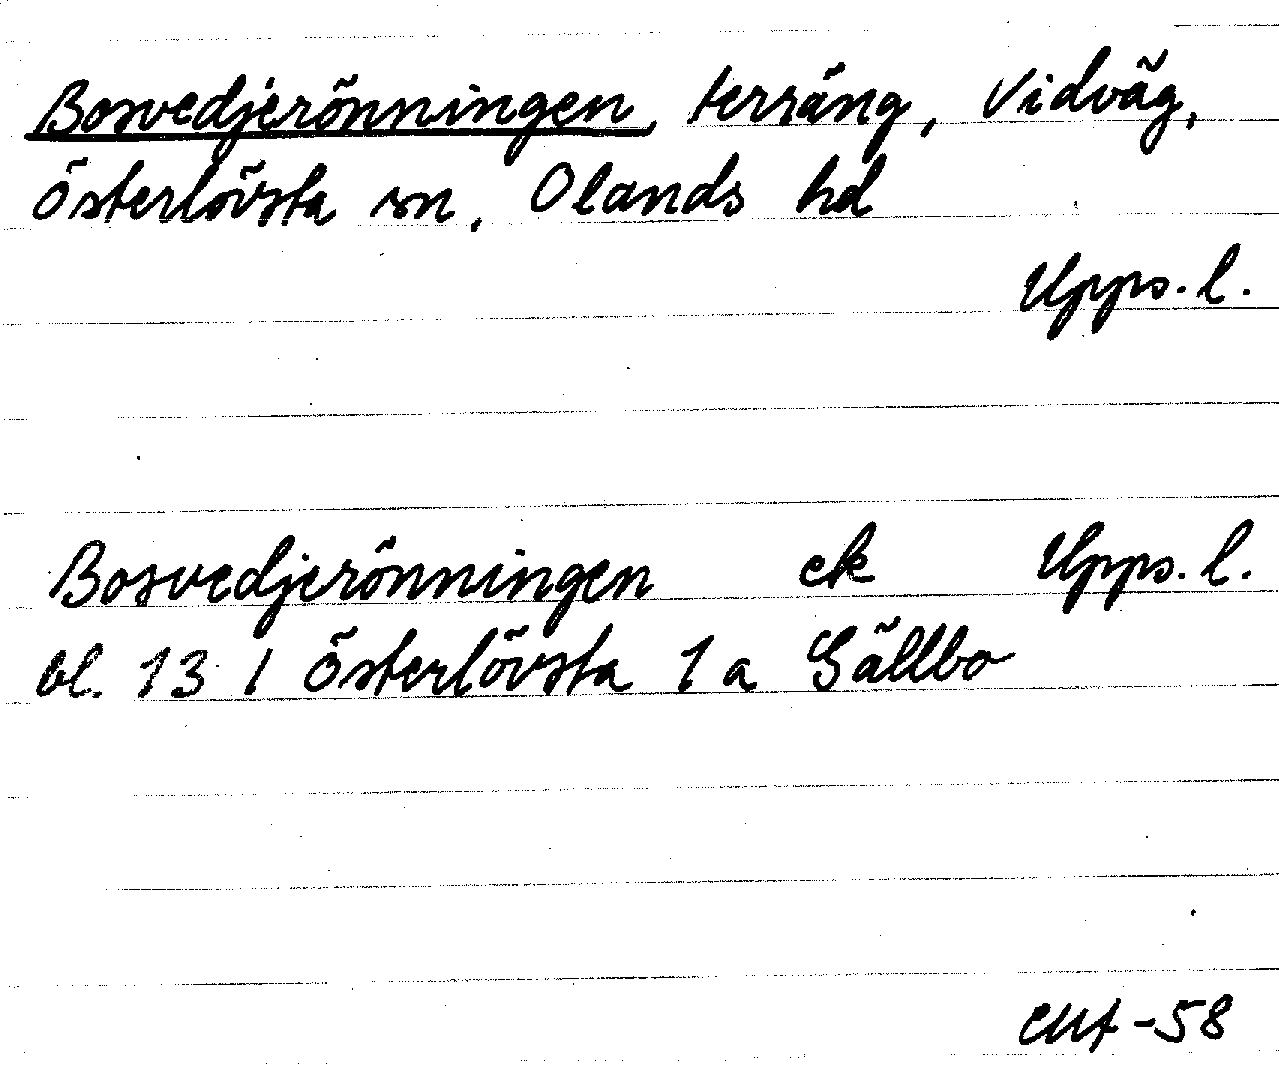 Bosvedjerönningen, terräng, Vidväg,
Österlövsta sn, Olands hd
Upps. l.
Bosvedjerönningen ek Upps. l.
bl. 13 I Österlövsta 1 a Sällbo
-58